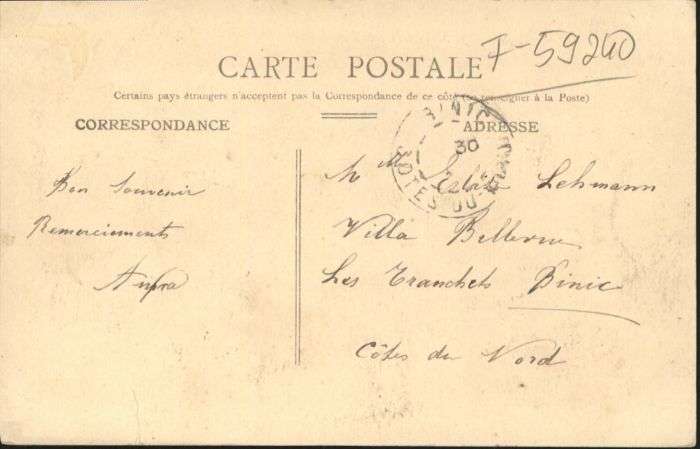 CARTE POSTALE
F-59240
Certains pays étrangers n'acceptent pas la Correspondance de ce côté (se renseigner à la Poste)
CORRESPONDANCE
ADRESSE
BINIC
30
COTES-DU-NORD
Bon Souvenir
Remerciements
M Mme Lehmann
Villa Bellevue
Les Tranchets Binic
Côtes du Nord